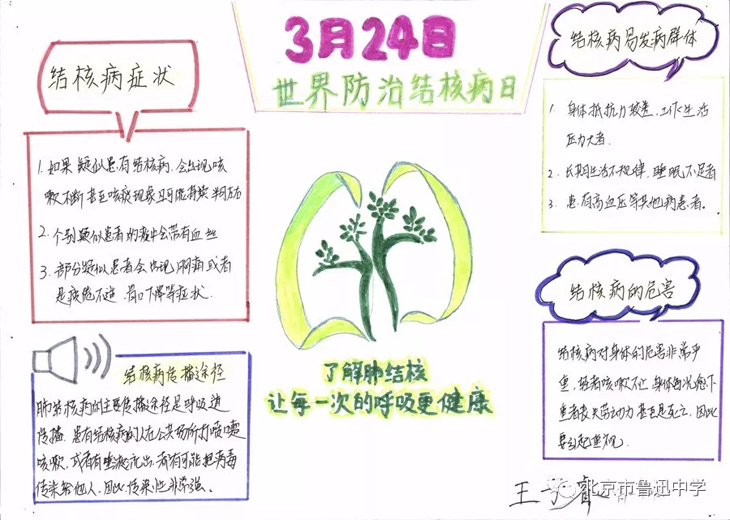 3月24日
世界防治结核病日
结核病症状
1. 如果疑似患有结核病,会出现咳
嗽不断甚至咳痰现象且可能持续半月左右
2. 个别疑似患者的痰中会带有血丝
3. 部分疑似患者会出现胸痛或者
是疲倦不适、胃口下降等症状.
结核病传播途径
肺结核病的主要传播途径是呼吸道
传播,患有结核病的人在公共场所打喷嚏
咳嗽,或者有唾液流出,都有可能把病毒
传染给他人,因此,传染性非常强。
了解肺结核
让每一次的呼吸更健康
结核病易发病群体
1. 身体抵抗力较差,工作生活
压力大者.
2. 长期生活不规律,睡眠不足者
3. 患有高血压等其他病患者。
结核病的危害
结核病对身体的危害非常严
重,轻者咳嗽不止,身体每况愈下
重者丧失劳动力甚至是死亡,因此
要引起重视。
王子
北京市鲁迅中学